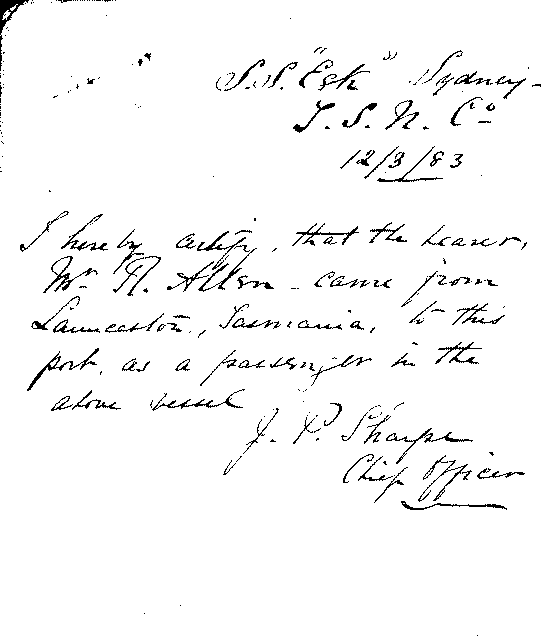 S.S. "Esk" Sydney
T. S. N. Co
12/3/83
I hereby certify, that the bearer,
Mr R. Allen - came from
Launceston, Tasmania, to this
port, as a passenger in the
above vessel
J. P. Sharpe
Chief Officer